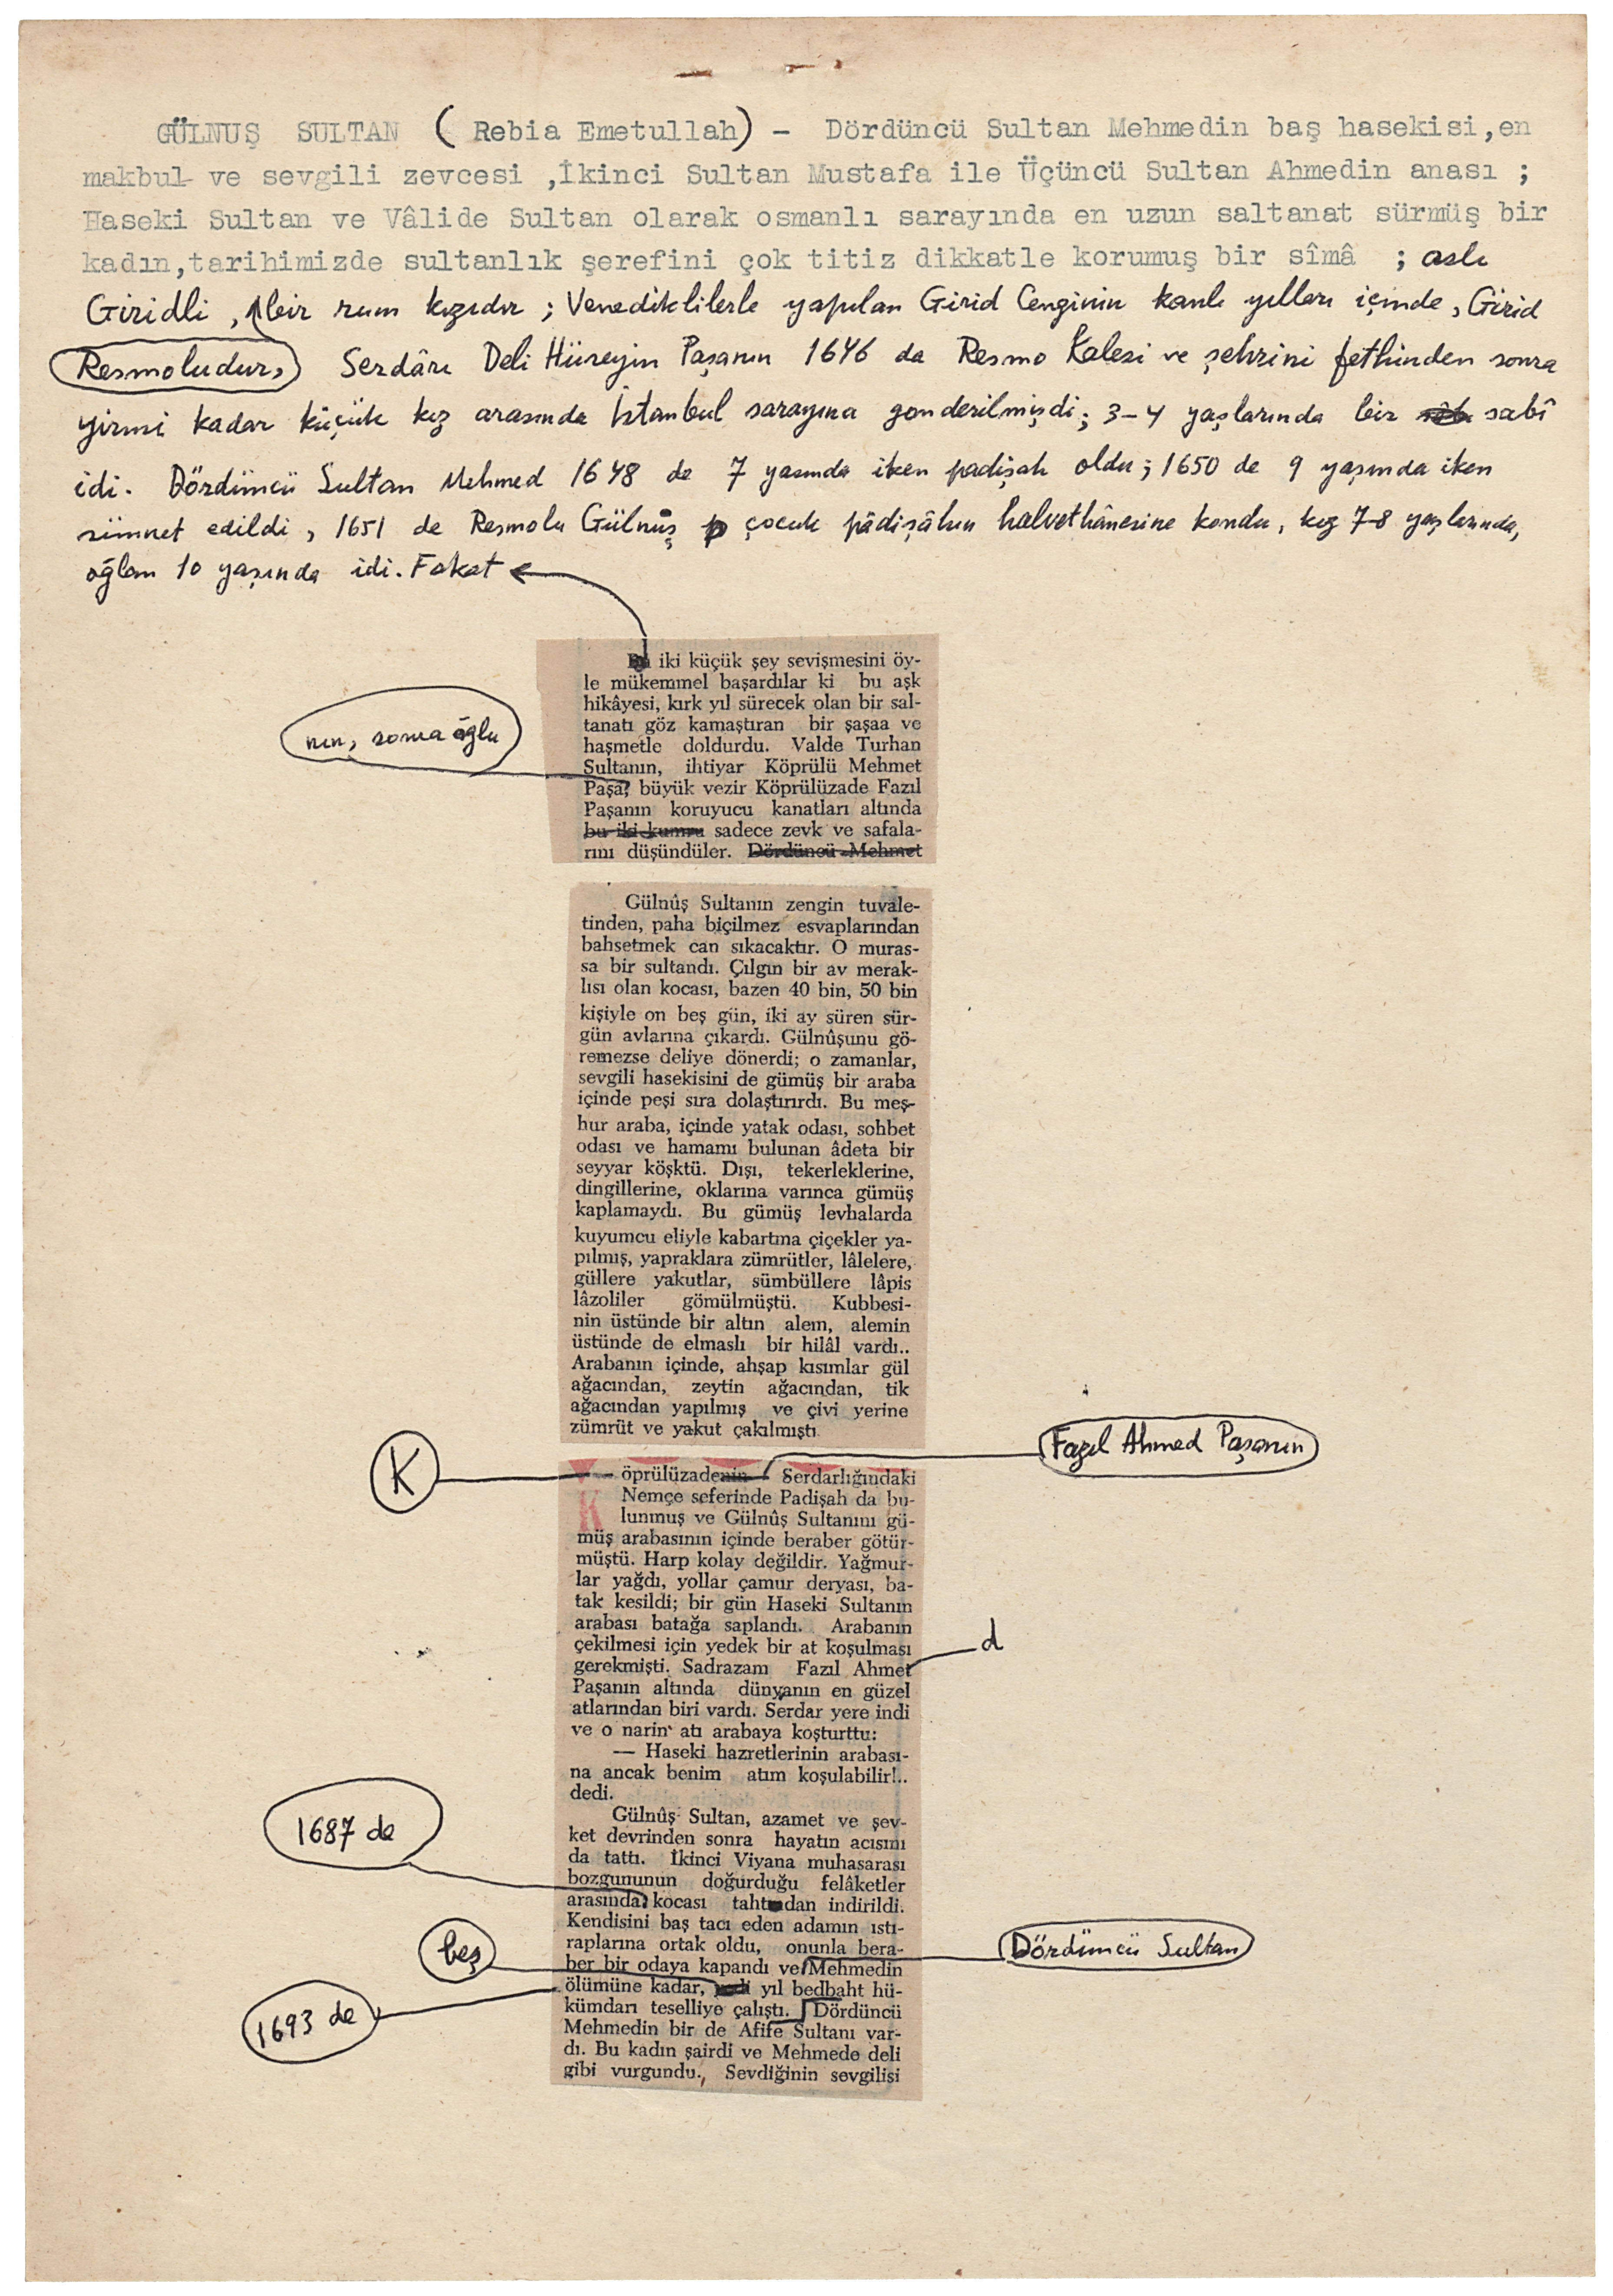 GÜLNUŞ SULTAN ( Rebia Emetullah) – Dördüncü Sultan Mehmedin baş hasekisi,en
makbul ve sevgili zevcesi ,İkinci Sultan Mustafa ile Üçüncü Sultan Ahmedin anası ;
Haseki Sultan ve Vâlide Sultan olarak osmanlı sarayında en uzun saltanat sürmüş bir
kadın,tarihimizde sultanlık şerefini çok titiz dikkatle korumuş bir sîmâ ; aslı
Giridli , bir rum kızıdır ; Venediklilerle yapılan Girid Cenginin kanlı yılları içinde , Girid
Resmoludur,
Serdârı Deli Hüseyin Paşanın 1646 da Resmo Kalesi ve şehrini fethinden sonra
yirmi kadar küçük kız arasında İstanbul sarayına gonderilmişdi ; 3–4 yaşlarında bir sabî
idi. Dördüncü Sultan Mehmed 1648 de 7 yasında iken padişah oldu ; 1650 de 9 yaşında iken
sünnet edildi , 1651 de Resmolu Gülnûş çocuk pâdişâhın halvethânesine kondu , kız 7-8 yaşlarında,
oğlan 10 yaşında idi. Fakat
Bu iki küçük şey sevişmesini öy-
le mükemmel başardılar ki bu aşk
hikâyesi, kırk yıl sürecek olan bir sal-
tanatı göz kamaştıran bir şaşaa ve
nın, sonra oğlu
haşmetle doldurdu. Valde Turhan
Sultanın, ihtiyar Köprülü Mehmet
Paşa, büyük vezir Köprülüzade Fazıl
Paşanın koruyucu kanatları altında
bu iki kumru sadece zevk ve safala-
rını düşündüler. Dördüncü Mehmet
Gülnûş Sultanın zengin tuvale-
tinden, paha biçilmez esvaplarından
bahsetmek can sıkacaktır. O muras-
sa bir sultandı. Çılgın bir av merak-
lısı olan kocası, bazen 40 bin, 50 bin
kişiyle on beş gün, iki ay süren sür-
gün avlarına çıkardı. Gülnûşunu gö-
remezse deliye dönerdi; o zamanlar,
sevgili hasekisini de gümüş bir araba
içinde peşi sıra dolaştırırdı. Bu meş-
hur araba, içinde yatak odası, sohbet
odası ve hamamı bulunan âdeta bir
seyyar köşktü. Dışı, tekerleklerine,
dingillerine, oklarına varınca gümüş
kaplamaydı. Bu gümüş levhalarda
kuyumcu eliyle kabartma çiçekler ya-
pılmış, yapraklara zümrütler, lâlelere,
güllere yakutlar, sümbüllere lâpis
lâzoliler gömülmüştü. Kubbesi-
nin üstünde bir altın alem, alemin
üstünde de elmaslı bir hilâl vardı..
Arabanın içinde, ahşap kısımlar gül
ağacından, zeytin ağacından, tik
ağacından yapılmış ve çivi yerine
zümrüt ve yakut çakılmıştı
Fazıl Ahmed Paşanın
K
K
öprülüzadenin Serdarlığındaki
Nemçe seferinde Padişah da bu-
lunmuş ve Gülnûş Sultanını gü-
müş arabasının içinde beraber götür-
müştü. Harp kolay değildir. Yağmur-
lar yağdı, yollar çamur deryası, ba-
tak kesildi; bir gün Haseki Sultanın
arabası batağa saplandı. Arabanın
çekilmesi için yedek bir at koşulması
d
gerekmişti. Sadrazam Fazıl Ahmet
Paşanın altında dünyanın en güzel
atlarından biri vardı. Serdar yere indi
ve o narin atı arabaya koşturttu:
— Haseki hazretlerinin arabası-
na ancak benim atım koşulabilir!..
dedi.
Gülnûş Sultan, azamet ve şev-
1687 de
ket devrinden sonra hayatın acısını
da tattı. İkinci Viyana muhasarası
bozgununun doğurduğu felâketler
arasında, kocası tahtından indirildi.
Kendisini baş tacı eden adamın ıstı-
beş
Dördüncü Sultan
raplarına ortak oldu, onunla bera-
ber bir odaya kapandı ve Mehmedin
ölümüne kadar, yedi yıl bedbaht hü-
1693 de
kümdarı teselliye çalıştı. Dördüncü
Mehmedin bir de Afife Sultanı var-
dı. Bu kadın şairdi ve Mehmede deli
gibi vurgundu., Sevdiğinin sevgilisi